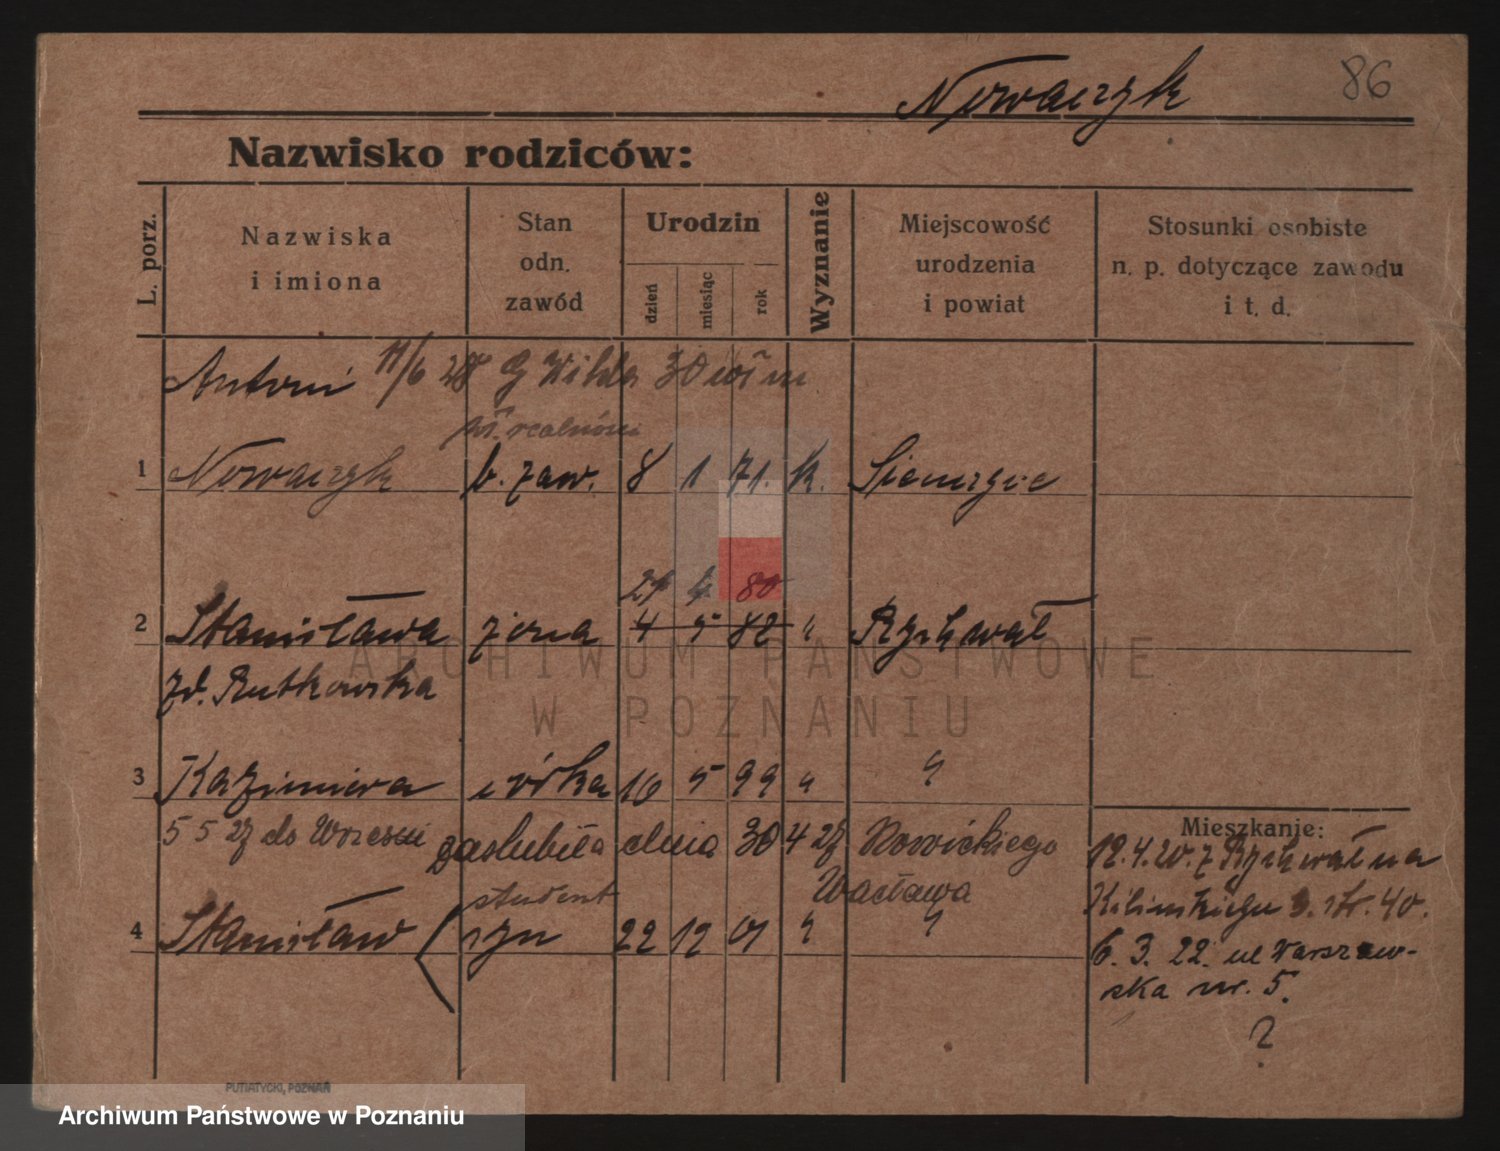 Nowaczyk 86
Nazwisko rodziców:
L. porz.
Nazwiska
i imiona
Stan
odn.
zawód
Urodzin
dzień
miesiąc
rok
Wyznanie
Miejscowość
urodzenia
i powiat
Stosunki osobiste
n. p. dotyczące zawodu
i t. d.
Antoni 11/6 28 G Wilda 30
wł. realności
1 Nowaczyk b. zaw. 8 1 71. k.
21 4 80
2 Stanisława żona 4 5 82 " Rychwał
zd. Rutkowska
3 Kazimiera córka 10 5 99 " "
5 5 27 do Wrześni zaślubiła dnia 30 4 27 Nowickiego
Wacława
student
4 Stanisław syn 22 12 01 " "
Mieszkanie:
12.4.20. z Rychwał na
Kilińskiego 8. str. 40.
6. 3. 22. ul Warszaw-
ska nr. 5.
?
PUTIATYCKI, POZNAŃ
ARCHIWUM PAŃSTWOWE
W POZNANIU
Archiwum Państwowe w Poznaniu